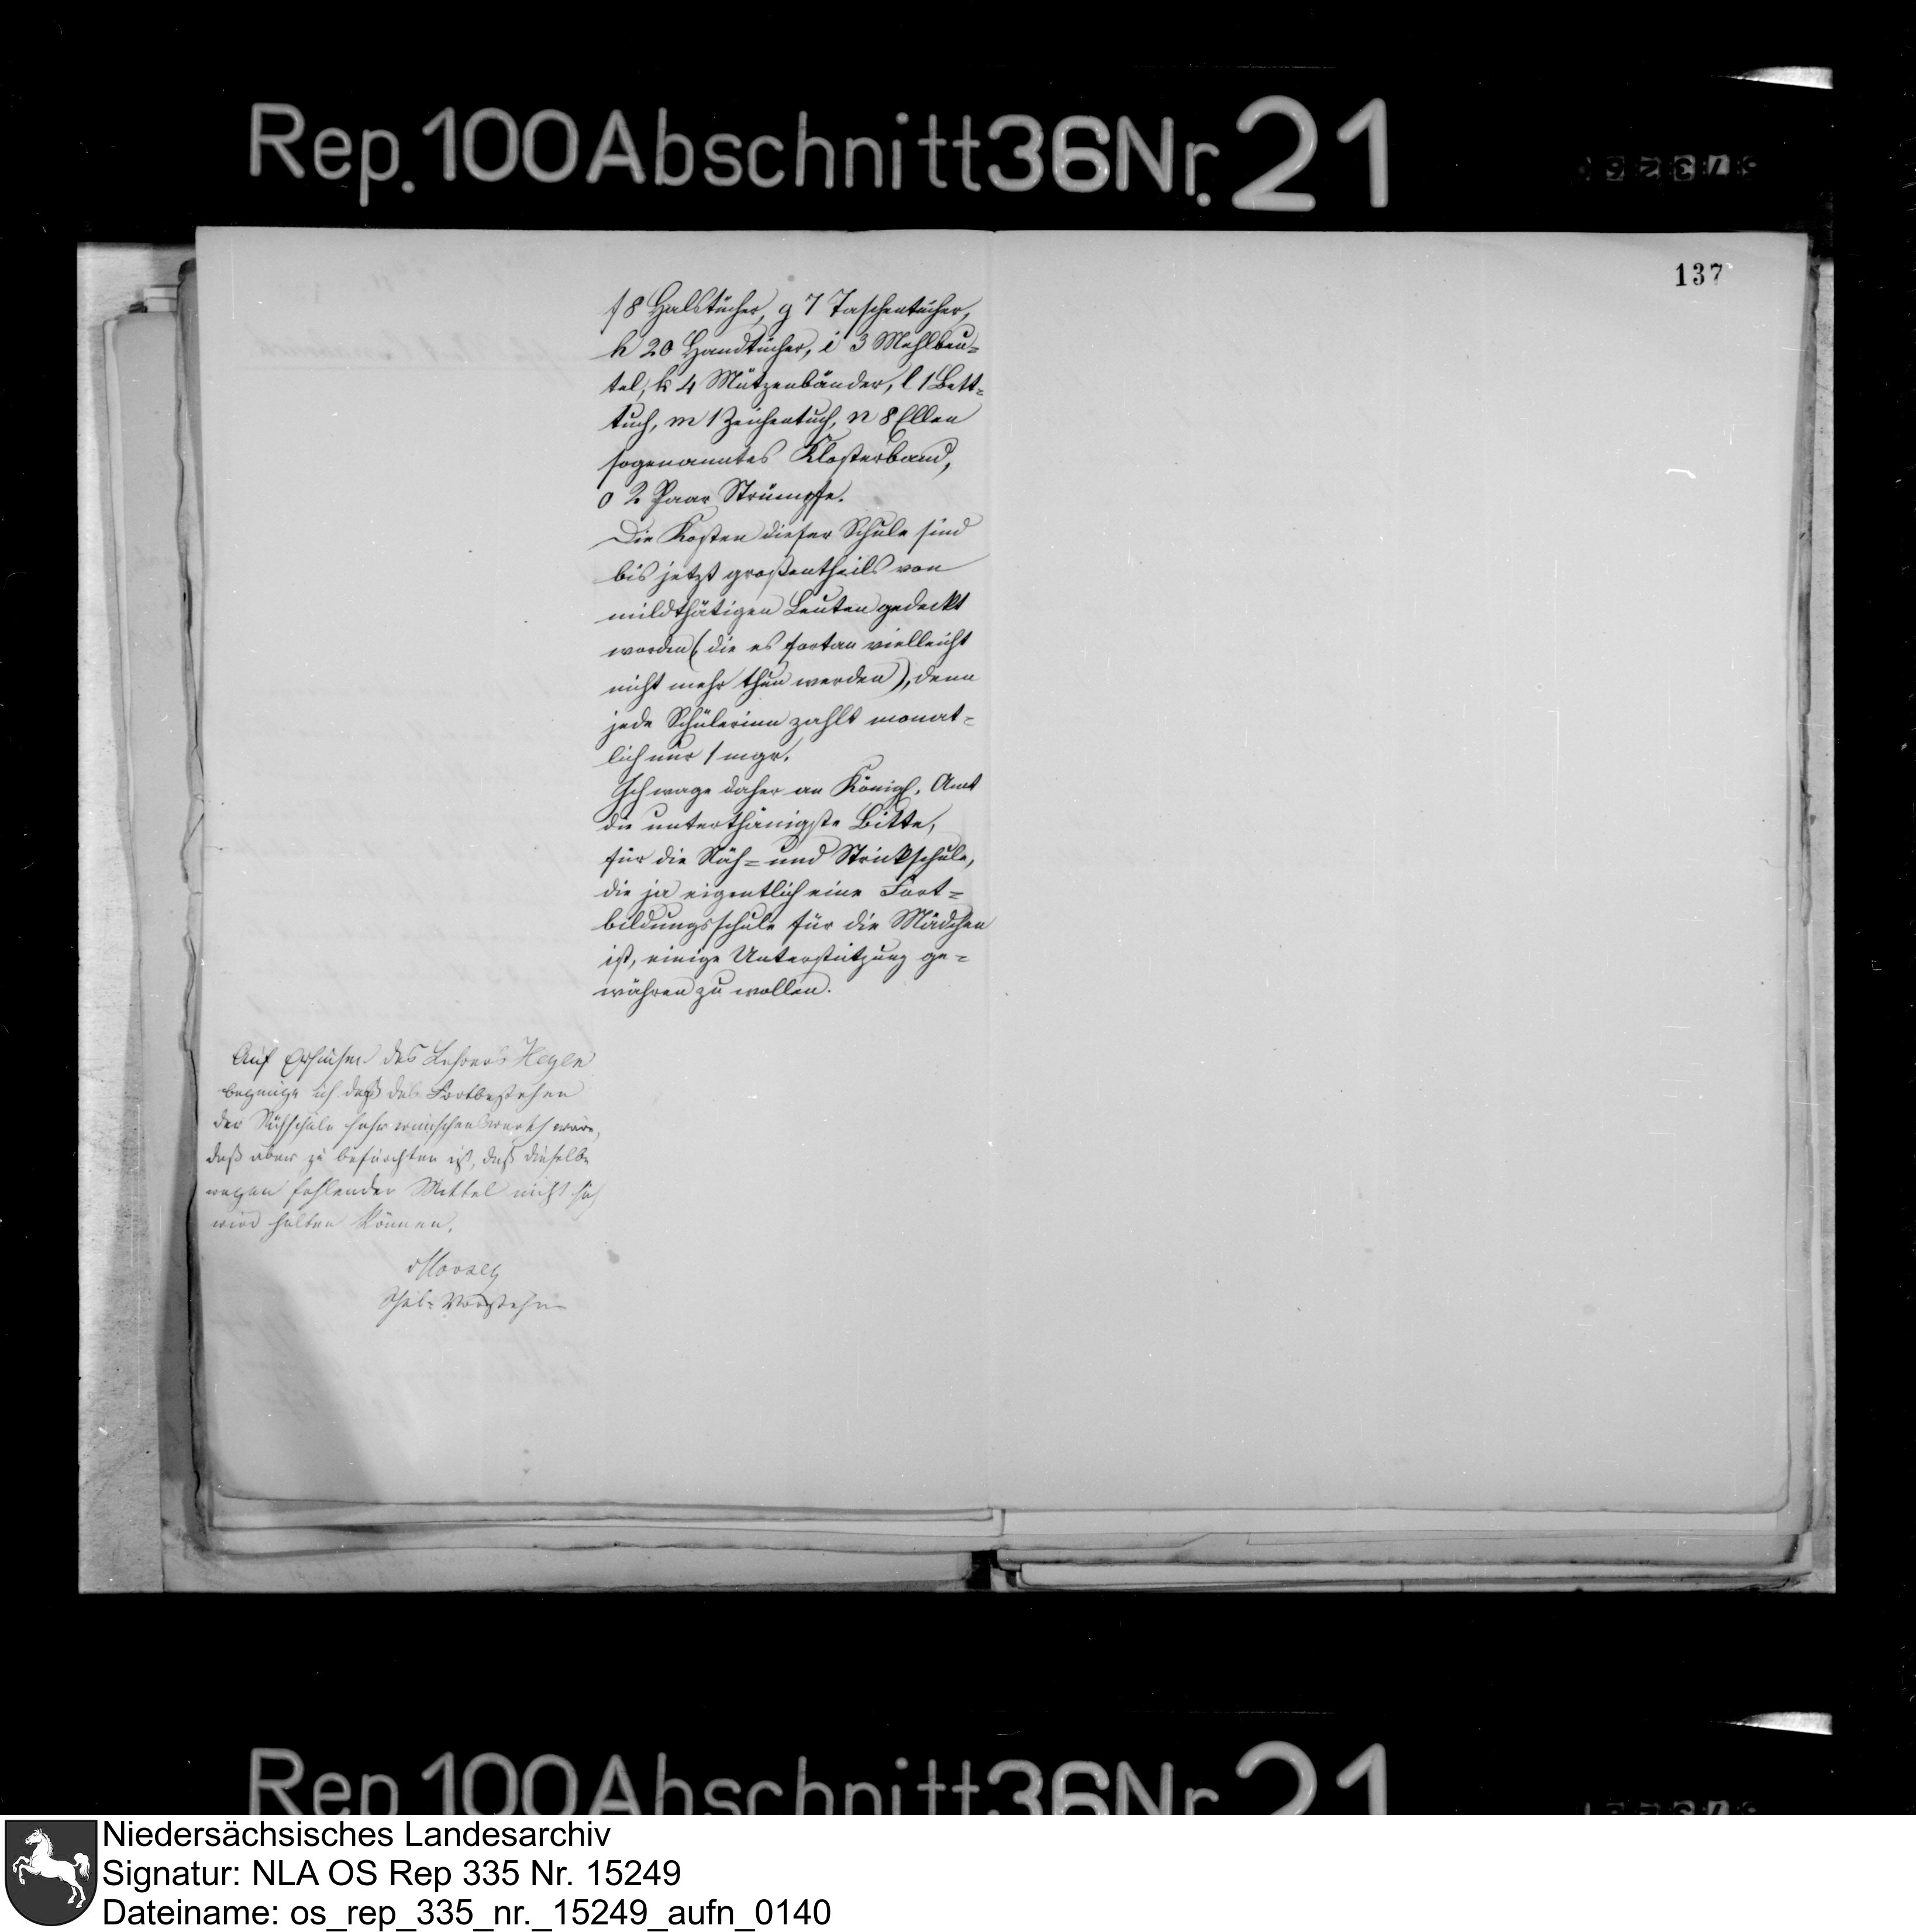 Rep. 100 Abschnitt 36 Nr. 21
137
f 8 Halstücher, g 7 Taschentücher,
h 20 Handtücher, i 3 Mehlbeu=
tel, k 4 Mützenbänder, l 1 Bett=
tuch, m 1 Zeichentuch, n 8 Ellen
sogenanntes Klosterband,
o 2 Paar Strümpfe.
Die Kosten dieser Schule sind
bis jetzt großentheils von
mildthätigen Leuten gedeckt
worden (die es fortan vielleicht
nicht mehr thun werden), denn
jede Schülerinn zahlt monat=
lich nur 1 mgr.
Ich wage daher an Königl. Amt
die unterthänigste Bitte,
für die Näh= und Strickschule,
die ja eigentlich eine Fort=
bildungsschule für die Mädchen
ist, einige Unterstützung ge=
währen zu wollen.
Auf Ersuchen des Lehrers Heyle
bezeuge ich daß das Fortbestehen
der Nähschule sehr wünschenswerth wäre,
daß aber zu befürchten ist, daß dieselbe
wegen fehlender Mittel nicht sich
wird halten können.
Schul= Vorsteher
Rep. 100 Abschnitt 36 Nr. 21
Niedersächsisches Landesarchiv
Signatur: NLA OS Rep 335 Nr. 15249
Dateiname: os_rep_335_nr._15249_aufn_0140